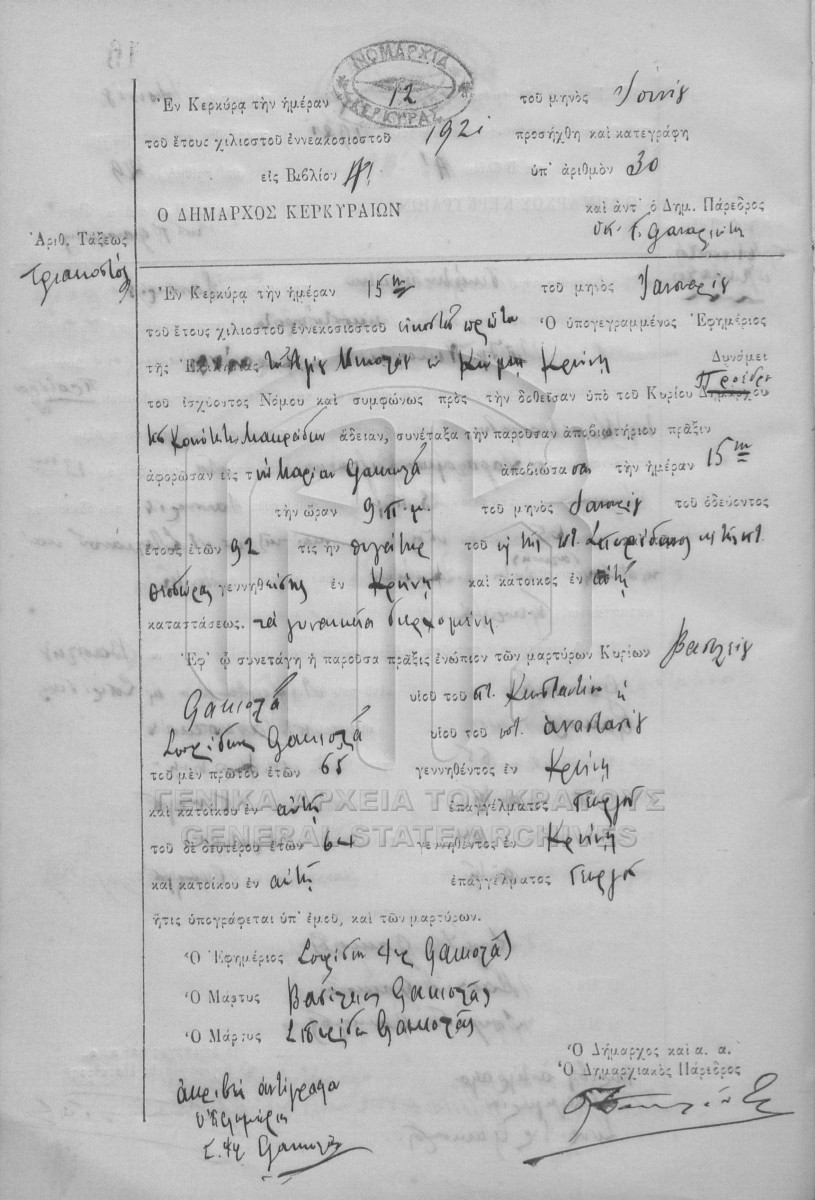 ΝΟΜΑΡΧΙΑ
ΚΕΡΚΥΡΑΣ
Ἐν Κερκύρᾳ τὴν ἡμέραν 12 τοῦ μηνὸς
τοῦ ἔτους χιλιοστοῦ ἐννεακοσιοστοῦ 1921 προσήχθη καὶ κατεγράφη
εἰς Βιβλίον ὑπ' ἀριθμὸν 30
Ὁ ΔΗΜΑΡΧΟΣ ΚΕΡΚΥΡΑΙΩΝ καὶ ἀντ' ὁ Δημ. Πάρεδρος
Ἀριθ. Τάξεως
Τριακοστὸς
Ἐν Κερκύρᾳ τὴν ἡμέραν 15ην τοῦ μηνὸς Ἰανουαρίου
τοῦ ἔτους χιλιοστοῦ ἐννεκοσιοστοῦ εἰκοστοῦ πρώτου Ὁ ὑπογεγραμμένος Ἐφημέριος
τῆς Ἐκκλησίας τοῦ Ἁγίου Νικολάου Κρήνη Δυνάμει
τοῦ ἰσχύοντος Νόμου καὶ συμφώνως πρὸς τὴν δοθεῖσαν ὑπὸ τοῦ Κυρίου Δημάρχου Προέδρου
Κοινότητος Μακράδων ἄδειαν, συνέταξα τὴν παροῦσαν ἀποβιωτήριον πρᾶξιν
ἀφορῶσαν εἰς τὴν Μαρίαν Γακιολᾶ ἀποβιώσασα τὴν ἡμέραν 15ην
τὴν ὥραν 9 π.μ. τοῦ μηνὸς Ἰανουαρίου τοῦ ὁδεύοντος
ἔτους ἐτῶν 92 τις ἦν θυγάτηρ τοῦ ποτ. Σπυρίδωνος καὶ τῆς ποτ.
Θεοδώρας γεννηθείσης ἐν Κρήνῃ καὶ κάτοικος ἐν αὐτῇ
καταστάσεως. τὰ γυναικεῖα διερχομένη
Ἐφ' ᾧ συνετάγη ἡ παροῦσα πρᾶξις ἐνώπιον τῶν μαρτύρων Κυρίων Βασιλείου
Γακιολᾶ υἱοῦ τοῦ ποτ. Κωνσταντίνου
Σπυρίδωνος Γακιολᾶ υἱοῦ τοῦ ποτ. Ἀναστασίου
τοῦ μὲν πρώτου ἐτῶν 65 γεννηθέντος ἐν Κρήνῃ
καὶ κατοίκου ἐν αὐτῇ ἐπαγγέλματος Γεωργοῦ
ΓΕΝΙΚΑ ΑΡΧΕΙΑ ΤΟΥ ΚΡΑΤΟΥΣ
GENERAL STATE ARCHIVES
τοῦ δὲ δευτέρου ἐτῶν 64 γεννηθέντος ἐν Κρήνῃ
καὶ κατοίκου ἐν αὐτῇ ἐπαγγέλματος Γεωργοῦ
ἥτις ὑπογράφεται ὑπ' ἐμοῦ, καὶ τῶν μαρτύρων.
Ὁ Ἐφημέριος Σπυρίδων Γακιολᾶς
Ὁ Μάρτυς Βασίλειος Γακιολᾶς
Ὁ Μάρτυς Σπυρίδων Γακιολᾶς
Ὁ Δήμαρχος καὶ α. α.
Ὁ Δημαρχιακὸς Πάρεδρος
ἀκριβὲς ἀντίγραφον
ὁ ἐφημέριος
Γακιολᾶς